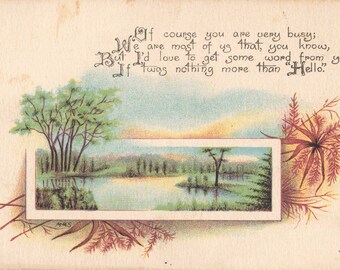 Of course you are very busy;
We are most of us that, you know,
But I'd love to get some word from y
If 'twas nothing more than "Hello."